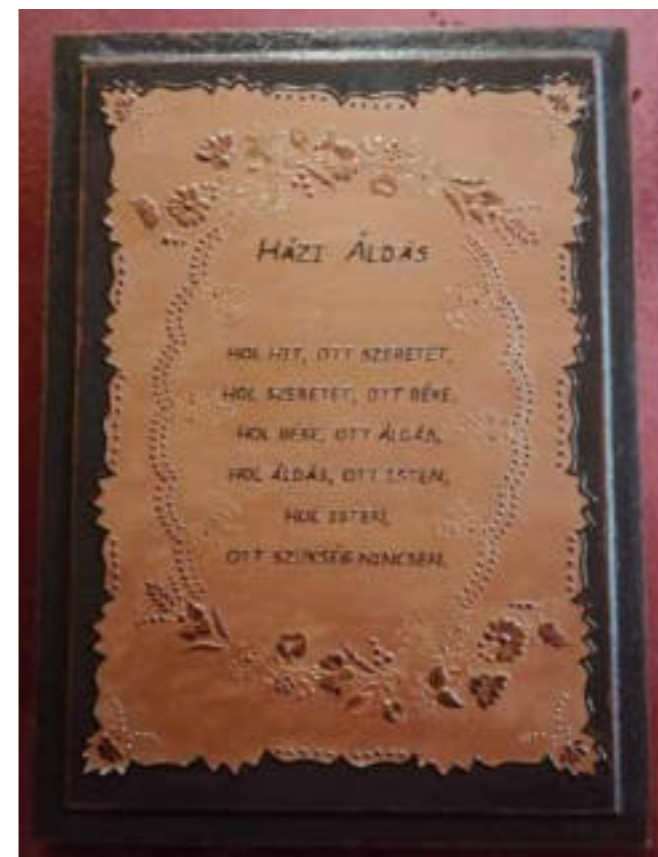 HÁZI ÁLDÁS
HOL HIT, OTT SZERETET,
HOL SZERETET, OTT BÉKE,
HOL BÉKE, OTT ÁLDÁS,
HOL ÁLDÁS, OTT ISTEN,
HOL ISTEN,
OTT SZÜKSÉG NINCSEN.